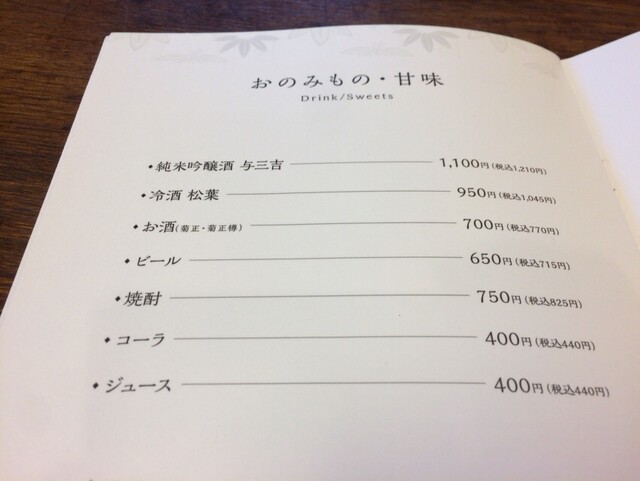 おのみもの・甘味
Drink/Sweets
・純米吟醸酒 与三吉 1,100円(税込1,210円)
・冷酒 松葉 950円(税込1,045円)
・お酒(菊正・菊正樽) 700円(税込770円)
・ビール 650円(税込715円)
・焼酎 750円(税込825円)
・コーラ 400円(税込440円)
・ジュース 400円(税込440円)